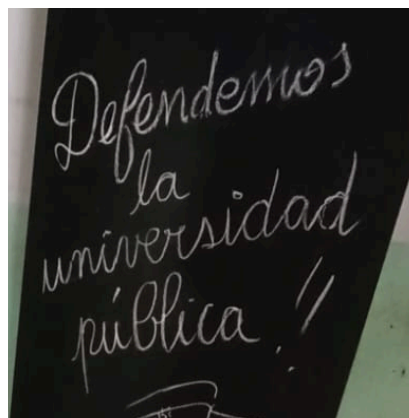 Defendemos
la
universidad
pública!!